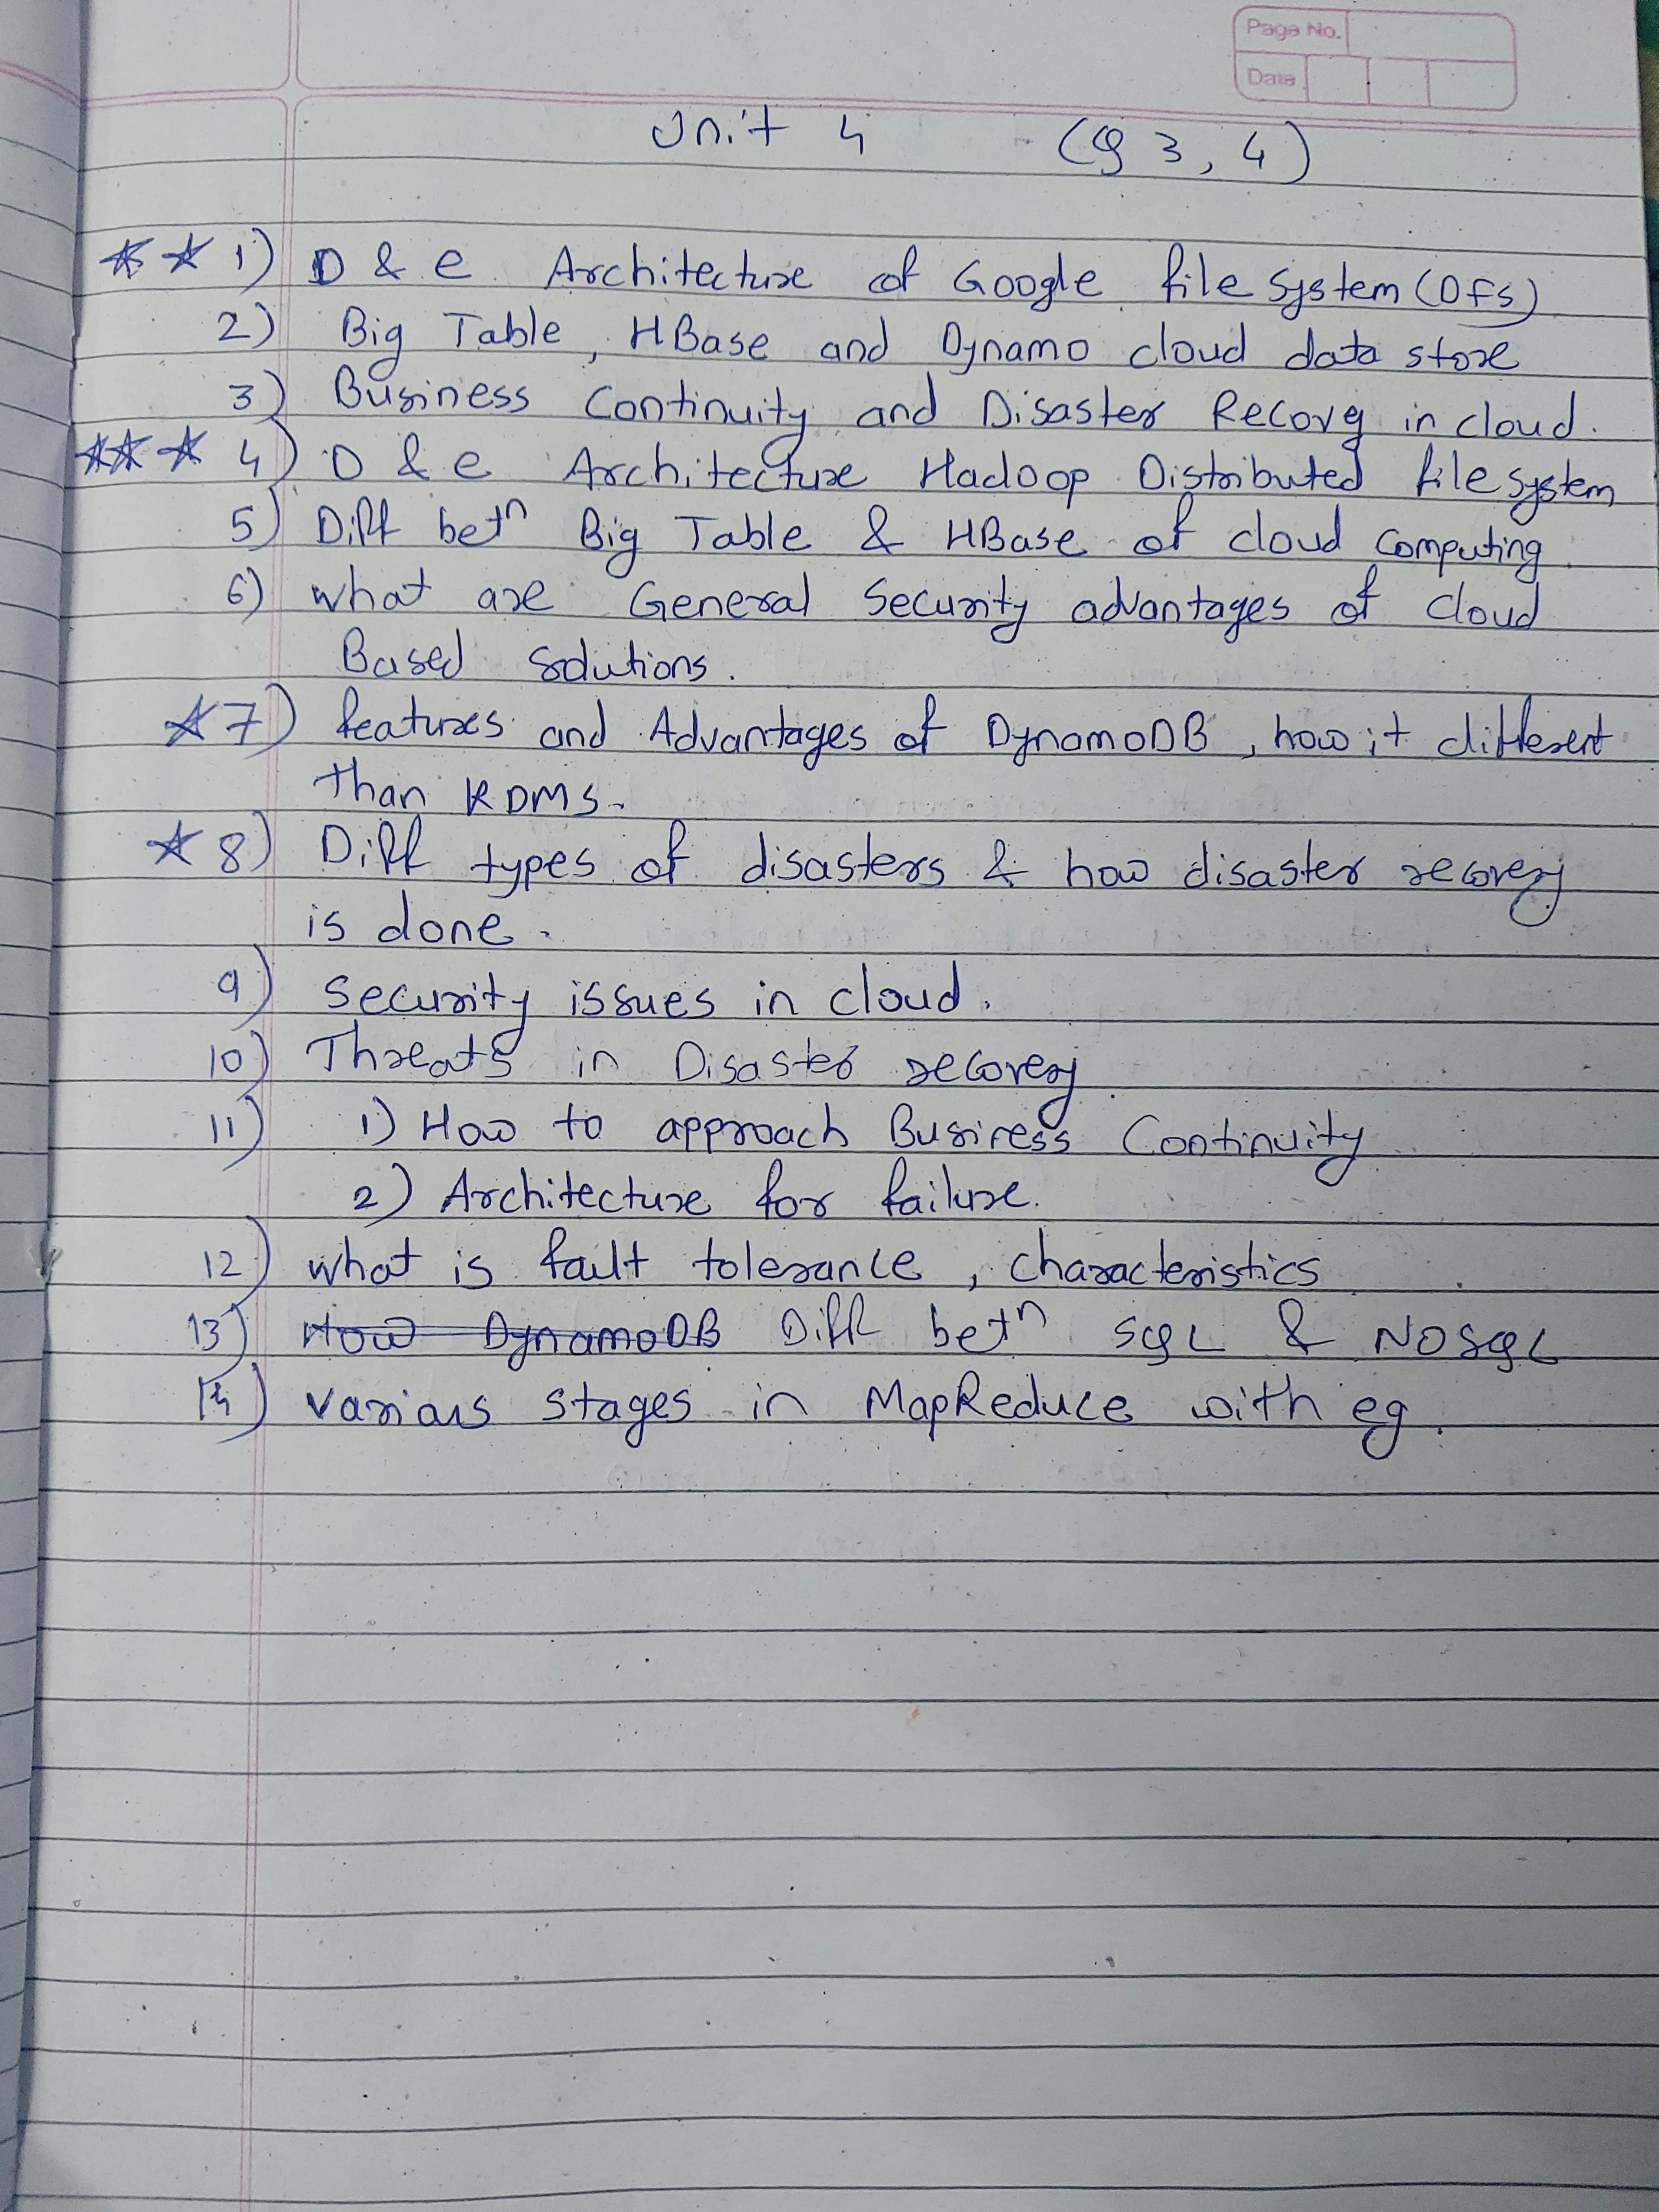 Page No.
Date
Unit 4 (Q 3, 4)
★ ★ 1) D & e Architecture of Google file System (DFS)
2) Big Table, HBase and Dynamo cloud data store
3) Business Continuity and Disaster Recovry in cloud.
★★ ★ 4) D & e Architecture Hadoop Distributed file system
5) Diff betn Big Table & HBase of cloud Computing
6) what are General Security advantages of Cloud
Based solutions.
★ 7) features and Advantages of DynamoDB, how it different
than RDMS.
★ 8) Diff types of disasters & how disaster recovery
is done.
9) Security issues in cloud.
10) Threats in Disaster recovery
11) 1) How to approach Business Continuity
2) Architecture for failure.
12) what is fault tolerance, characteristics
13) How DynamoDB Diff betn SQL & NOSQL
14) various stages in MapReduce with eg.